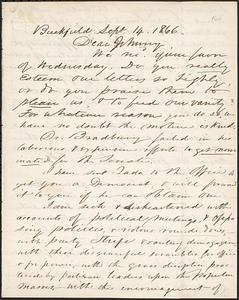 Buckfield, Sept. 14. 1866.
Dear Johnny
We rec'd your favor
of Wednesday. Do you really
esteem our letters so highly,
or do you praise them to
please us & to feed our vanity?
For whatever reason you do so, we
have no doubt the motive is kind
Dr. Bradbury failed in his
laborious & expensive efforts to get nom
inated for the Senate.
I have sent to the Office to
get you a Democrat & will forward
it to you if we can obtain one.
I am sick & disheartened with
accounts of political meetings, & oppo
sing policies, & riotous rounds
with party strife & ranting demagogues
with their disgraceful scrambles for office
& for power, with the gross deception prac
ticed by partisan leaders upon the popular
masses, with the encouragement of